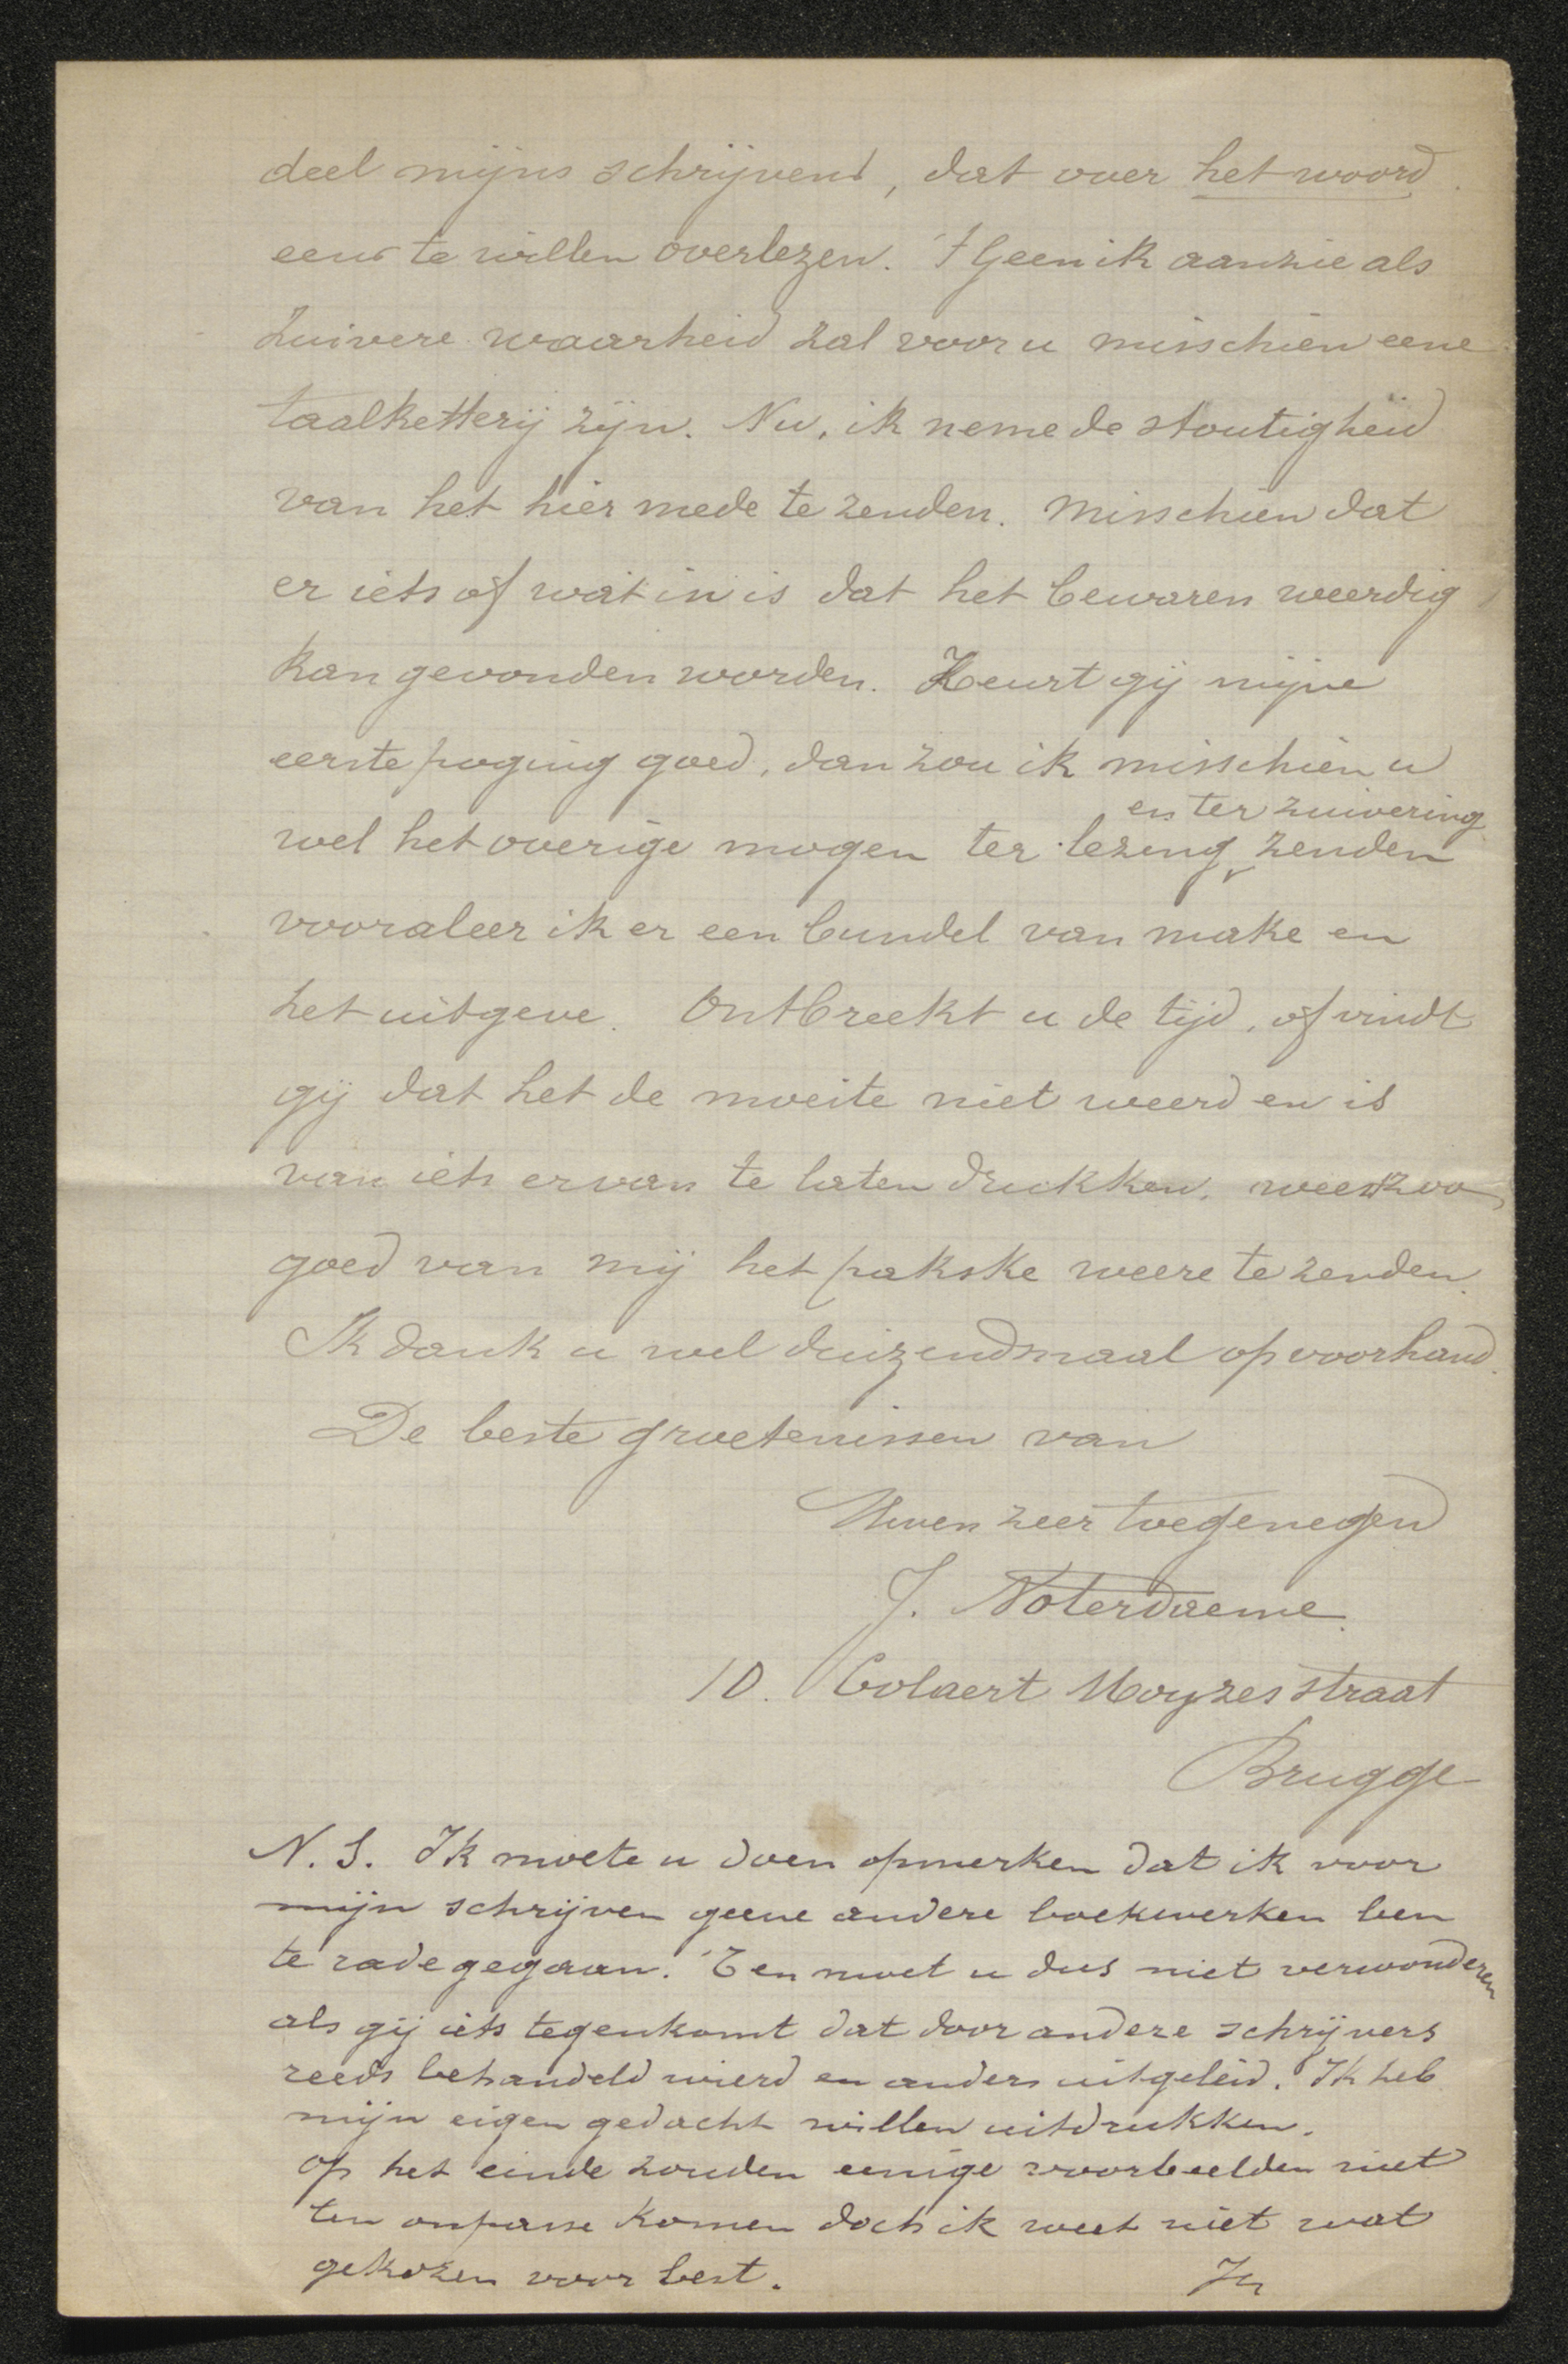 deel mijns schrijvens, dat over het woord
eens te willen overlezen. 't Geen ik aanzie als
zuivere waarheid zal voor u misschien eene
taalketterij zijn. Nu, ik neme de stoutigheid
van het hier mede te zenden. Misschien dat
er iets of wat in is dat het bewaren weerdig
kan gevonden worden. Keurt gij mijne
eerste poging goed, dan zou ik misschien u
en ter zuivering
wel het overige mogen ter lezing zenden
vooraleer ik er een bundel van make en
het uitgeve. Ontbreekt u de tijd, of vindt
gij dat het de moeite niet weerd en is
van iets ervan te laten drukken, wees zoo
goed van mij het pakske weere te zenden.
Ik dank u wel duizendmaal op voorhand.
De beste groetenissen van
Uwen zeer toegenegen
J. Noterdaeme.
10. Colaert Moyzes straat
Brugge
N. S. Ik moete u doen opmerken dat ik voor
mijn schrijven geene andere boekwerken ben
te rade gegaan. 'T en moet u dus niet verwonderen
als gij iets tegenkomt dat door andere schrijvers
reeds behandeld wierd en anders uitgeleid. Ik heb
mijn eigen gedacht willen uitdrukken.
op het einde zouden eenige voorbeelden niet
ten onpasse komen doch ik weet niet wat
gekozen voor best.